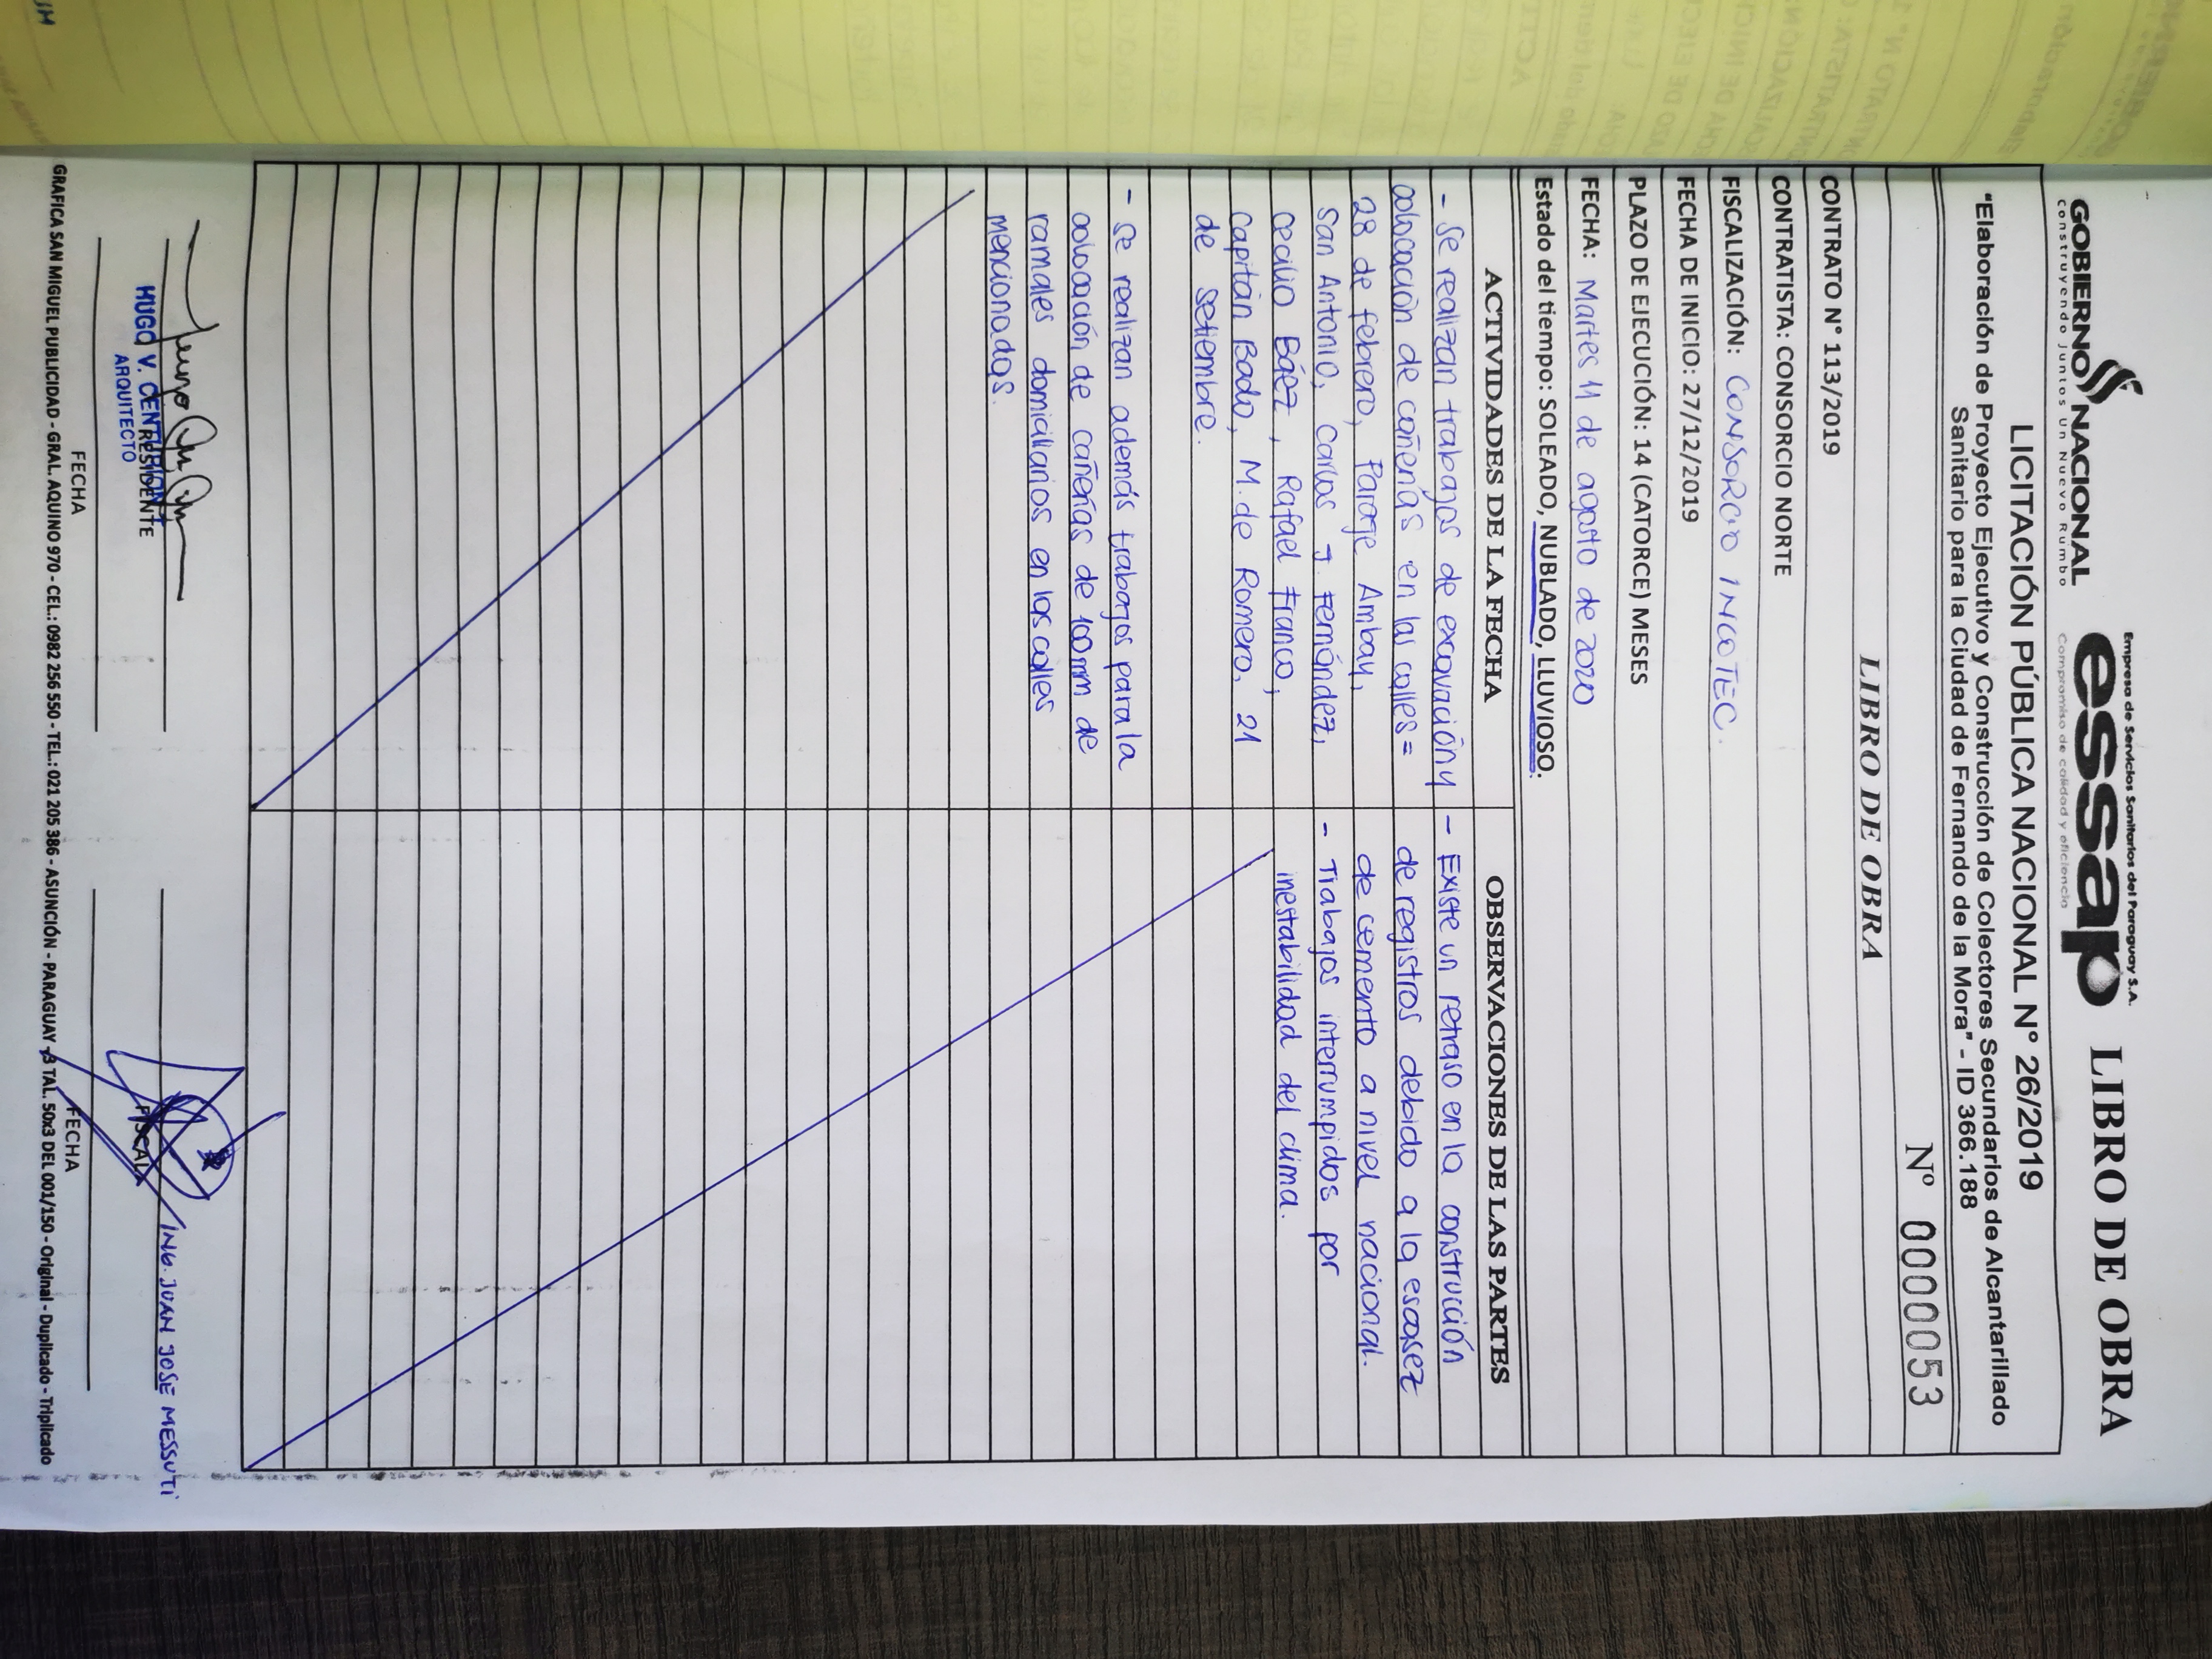 GOBIERNO NACIONAL
Construyendo Juntos Un Nuevo Rumbo
Empresa de Servicios Sanitarios del Paraguay S.A.
essap
compromiso de calidad y eficiencia
LIBRO DE OBRA
LICITACIÓN PÚBLICA NACIONAL N° 26/2019
"Elaboración de Proyecto Ejecutivo y Construcción de Colectores Secundarios de Alcantarillado
Sanitario para la Ciudad de Fernando de la Mora" - ID 366.188
Nº 0000053
LIBRO DE OBRA
CONTRATO N° 113/2019
CONTRATISTA: CONSORCIO NORTE
FISCALIZACIÓN: CONSORCIO INCOTEC.
FECHA DE INICIO: 27/12/2019
PLAZO DE EJECUCIÓN: 14 (CATORCE) MESES
FECHA: Martes 11 de agosto de 2020
Estado del tiempo: SOLEADO, NUBLADO, LLUVIOSO.
ACTIVIDADES DE LA FECHA
- Se realizan trabajos de excavación y
colocación de cañerías en las calles =
28 de febrero, Paraje Ambay,
San Antonio, Carlos J. Fernández,
Cecilio Báez, Rafael Franco,
Capitán Bado, M. de Romero, 21
de setiembre.
- Se realizan además trabajos para la
colocación de cañerías de 100mm de
ramales domiciliarios en las calles
mencionadas.
OBSERVACIONES DE LAS PARTES
- Existe un retraso en la construcción
de registros debido a la escasez
de cemento a nivel nacional.
- Trabajos interrumpidos por
inestabilidad del clima.
HUGO V. CENTURION
RESIDENTE
ARQUITECTO
FECHA
ING. JUAN JOSE MESSUTI
FISCAL
FECHA
GRAFICA SAN MIGUEL PUBLICIDAD - GRAL. AQUINO 970 - CEL.: 0982 256 550 - TEL.: 021 205 386 - ASUNCIÓN - PARAGUAY - 3 TAL. 50x3 DEL 001/150 - Original - Duplicado - Triplicado